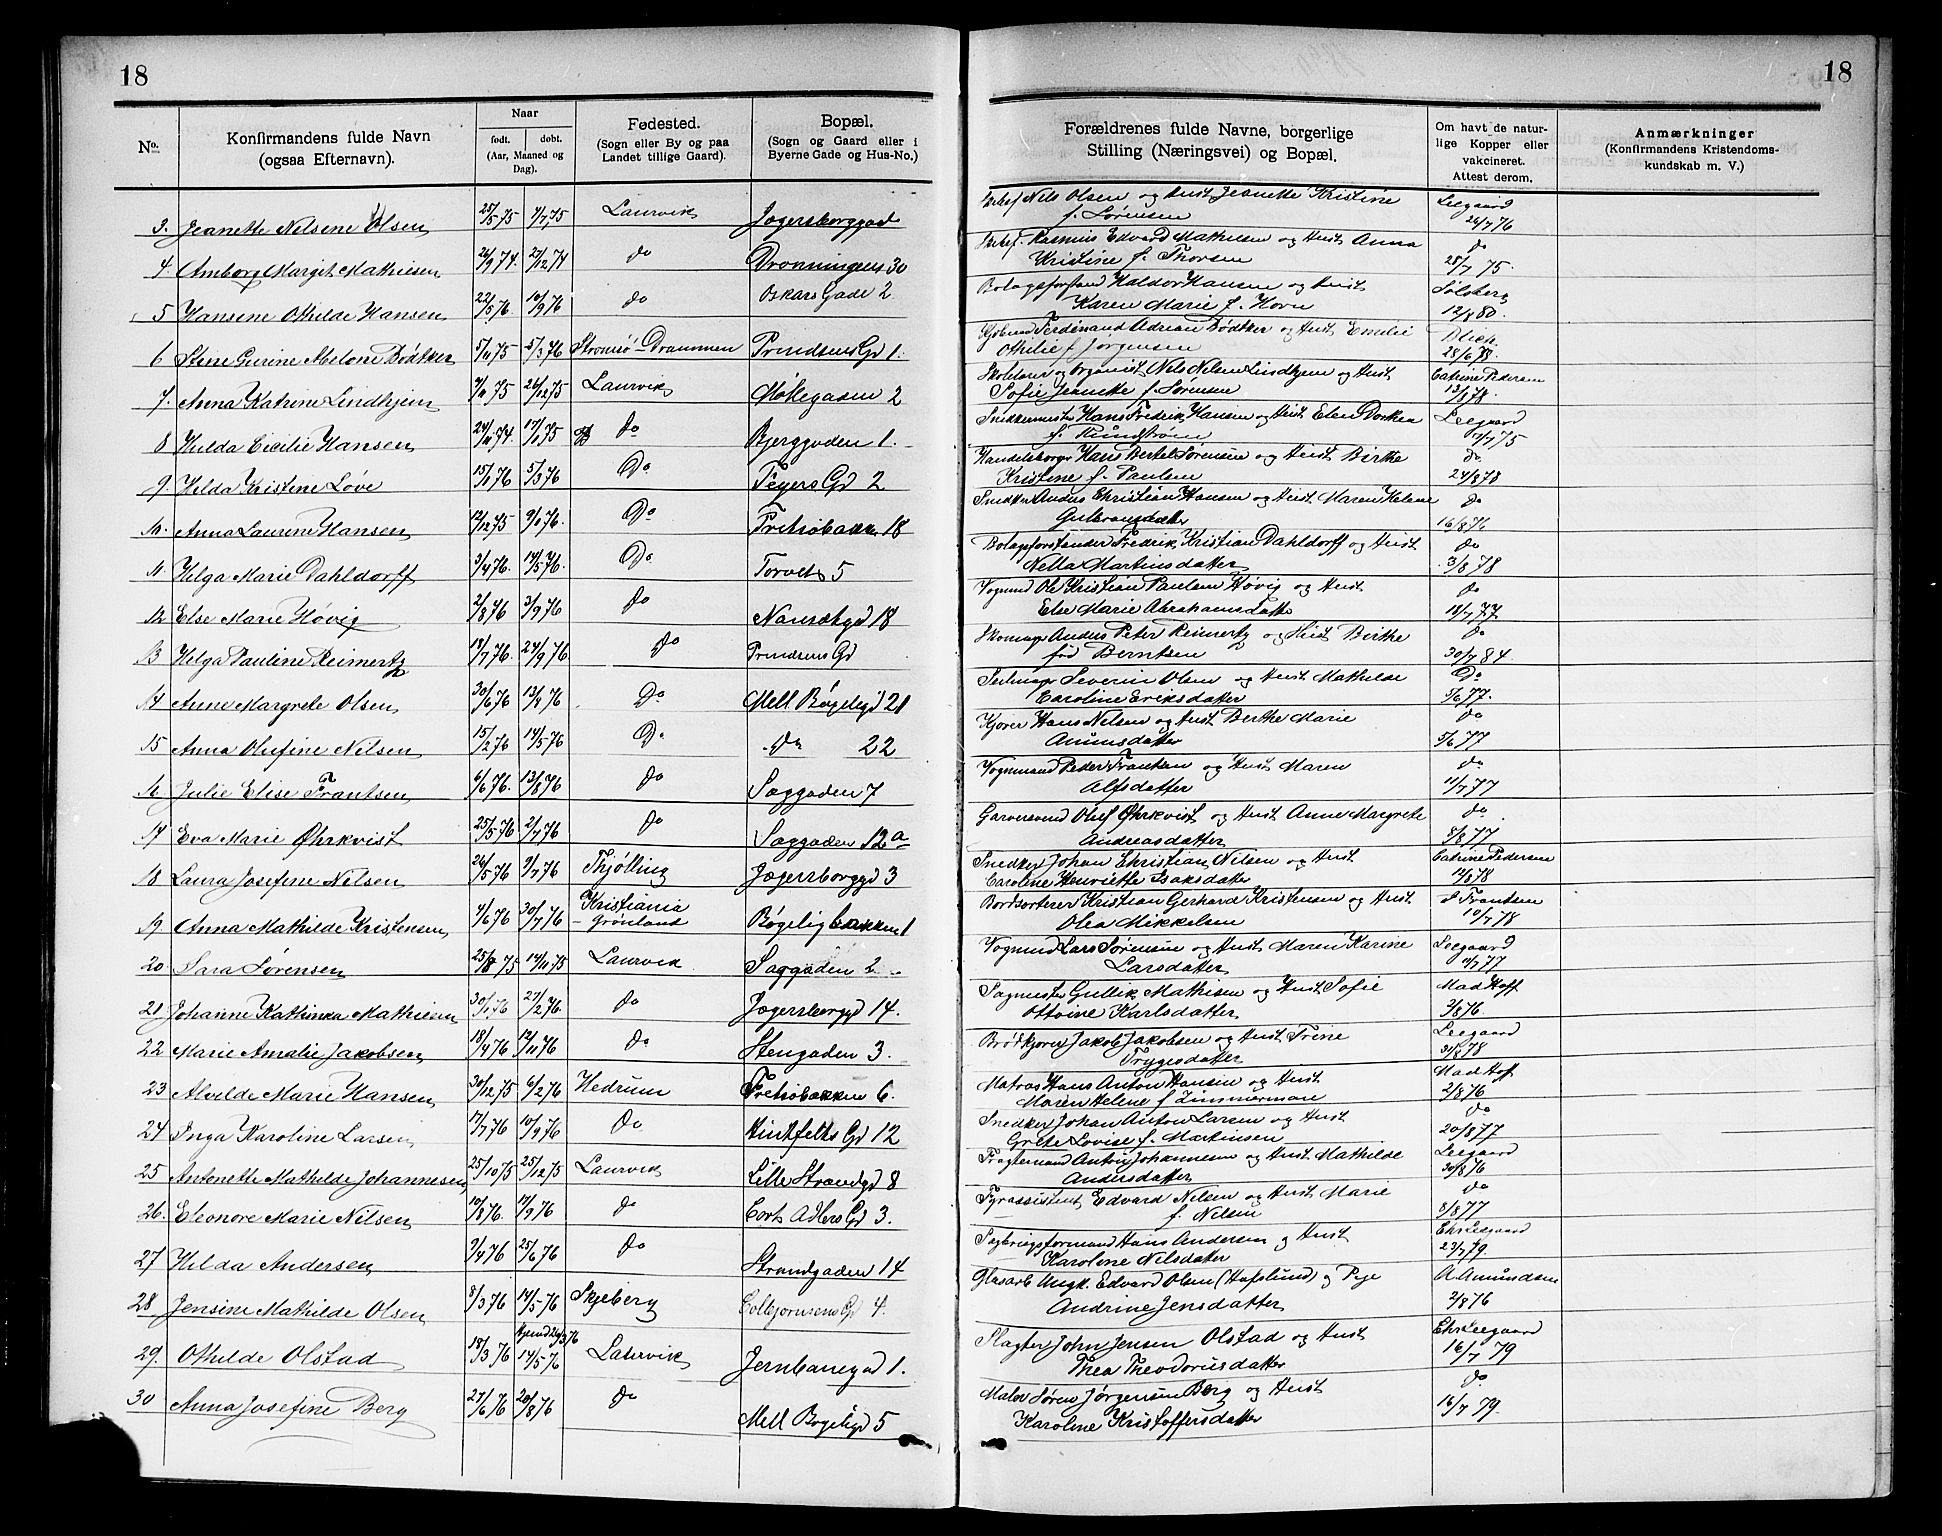 18
18
No.
Konfirmandens fulde Navn
(ogsaa Efternavn).
Naar
født. døbt.
(Aar, Maaned og
Dag).
Fødested.
(Sogn eller By og paa
Landet tillige Gaard).
Bopæl.
(Sogn og Gaard eller i
Byerne Gade og Hus-No.)
Forældrenes fulde Navne, borgerlige
Stilling (Næringsvei) og Bopæl.
Om havt de natur-
lige Kopper eller
vakcineret.
Attest derom.
Anmærkninger
(Konfirmandens Kristendoms-
kundskab m. V.)
3. Jeanette Nilsine Olsen 25/5 75 4/7 75 Laurvik Jegersborggad
Nils Olsen og Hust Jeanette Kristine
f. Sørensen
Leegaard
26/7 76
4 Amborg Margit Mathisen 26/9 74. 21/12 74 do Dronningens 30
Rasmus Edvard Mathisen og Hust Anna
Kristine f. Thorsen
do
28/7 75.
5 Hansine Othilde Hansen 22/5 76 10/9 76 do Oskars Gade 2
Bolagsforstand Haldor Hansen og Hust
Karen Marie f. Horn
Solsberg
12/8 80.
6 Stine Gurine Abelone Bødtker 5/11 75 5/3 76 Strømsø - Drammen Prindsens Gd 1.
Ferdinand Adrian Bødtker og Hust Emilie
Othilie f Jørgensen
Blich
28/6 78.
7. Anna Katrine Lindhjem 9/11 75 26/12 75 Laurvik Møllegaden 2
Skolelærer og Organist Nils Nilsen Lindhjem og Hust
Sofie Jeanette f. Sørensen
Catrine Pedersen
13/8 78.
8 Hulda Cecilie Hansen 24/11 74. 17/1 75 Do Bjerggaden 1.
Snedkermester Hans Fredrik Hansen og Hust Elen Dorthea
f. Rundstrøm
Leegaard
17/7 75
9. Hilda Kristine Løve 15/1 76 5/3 76 Do Feyers Gd 2
Handelsborger Hans Bertel Sørensen og Hust Birthe
Kristine f. Paulsen
do.
24/8 78
10. Anna Laurine Hansen 12/12 75 9/1 76. Do Fretrobakken 18
Snedker Anders Christian Hansen og Hust Maren Helene
Gulbrandsdatter
do
16/8 76
11. Helga Marie Dahldorff 3/4 76. 14/5 76. Do Torvets 5
Bolagsforstander Fredrik Kristian Dahldorff og Hust
Nella Martinsdatter
do
3/8 78
12 Else Marie Høvig 2/8 76 3/9 76 do Nansetgd 18
Vogmand Ole Kristian Paulsen Høvig og Hust
Else Marie Abrahamsdatter
do
18/7 77.
13 Helga Pauline Reimertz 18/7 76. 24/9 76 do Prindsens Gd
Skomager Anders Peter Reimertz og Hust Birthe
fød Berntsen
do
30/7 84.
14 Anne Margrete Olsen 30/6 76 13/8 76 Do Mell Bøgeligd 21
Seilmager Severin Olsen og Hust Mathilde
Caroline Eriksdatter
Do
5/6 77.
15 Anna Olufine Nilsen 15/2 76 14/5 76 Do do 22
Kjører Hans Nilsen og Hust Berthe Marie
Amunsdatter
do
5/6 77
16 Julie Elise Frantsen 6/6 76. 13/8 76 do Saggaden 7
Vogmand Peder Frantsen og Hust Maren
Alfsdatter
do
11/7 77
17 Eva Marie Øhrkvist 25/5 76 2/7 76 do Saggaden 12a
Garversvend Oluf Øhrkvist og Hust Anne Margrete
Andreasdatter
do
8/8 77
18 Laura Josefine Nilsen 26/5 76 9/7 76 Thjølling Jægersborggd 3
Snedker Johan Christian Nilsen og Hust
Caroline Henriette Isaksdatter
Catrine Pedersen
14/8 78
19 Anna Mathilde Kristensen 4/6 76 30/7 76 Kristiania - Grønland Bøgeligbakken 1
Bordsorterer Kristian Gerhard Kristensen og Hust
Olea Mikkelsen
J Frantsen
10/7 78
20 Sara Sørensen 25/8 75 14/11 75 Laurvik Saggaden 2
Vogmand Lars Sørensen og Hust Maren Karine
Larsdatter
Leegaard
11/7 77
21 Johanne Kathinka Mathisen 30/1 76 27/2 76. do Jægersborggd 14.
Sagmester Gullik Mathisen og Hust Sofie
Ottoine Karlsdatter
Mad Hoff
2/8 76.
22 Marie Amalie Jakobsen 18/4 76 12/11 76 do Stengaden 3.
Brødkjører Jakob Jakobsen og Hust Trine
Trygesdatter
Leegaard
31/8 78
23 Alvilde Marie Hansen 30/12 75 6/2 76 Hedrum Fretrobakken 6.
Matros Hans Anton Hansen og Hust
Maren Helene f Zimmerman
Mad Hoff
2/8 76
24 Inga Karoline Larsen 17/7 76 10/9 76 Do Hintfelts Gd 12
Snedker Johan Anton Larsen og Hust
Grete Lovise f. Martinsen
do
20/8 77
25 Antonette Mathilde Johannesen 25/10 75 25/12 75 Laurvik Lille Strandgd 8
Fragtemand Anton Johannesen og Hust Mathilde
Andersdatter
Leegaard
30/8 76
26. Eleonore Marie Nilsen 10/8 76. 17/9 76 do Corts Adlers Gd 3.
Fyrassistent Edvard Nilsen og Hust Marie
f. Nilsen
do
3/8 77
27 Hilda Andersen 9/4 76 25/6 76 do Strandgaden 14
Sagbrugsformand Hans Andersen og Hust
Karoline Nilsdatter
Chr Leegaard
23/7 79.
28 Jensine Mathilde Olsen 8/3 76 14/5 76 Skjeberg Colbjørnsens Gd 4.
Glasarb Ungk. Edvard Olsen (Hafslund) og Pige
Andrine Jensdatter
A Amundsen
2/8 76
29. Othilde Olstad 18/3 76 Hjemd 29/3 76 14/5 76 Laurvik Jernbanegad 1.
Slagter John Jensen Olstad og Hust
Thea Theodorusdatter
Chr Leegaard
16/7 79
30 Anna Josefine Berg 27/6 76 20/8 76 do Mell Bøgeligd 5
Maler Søren Jørgensen Berg og Hust
Karoline Kristoffersdatter
do
16/7 79.